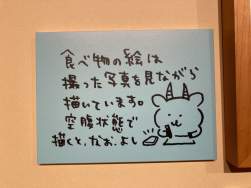 食べ物の絵は
撮った写真を見ながら
描いています。
空腹状態で
描くと、なお、よし